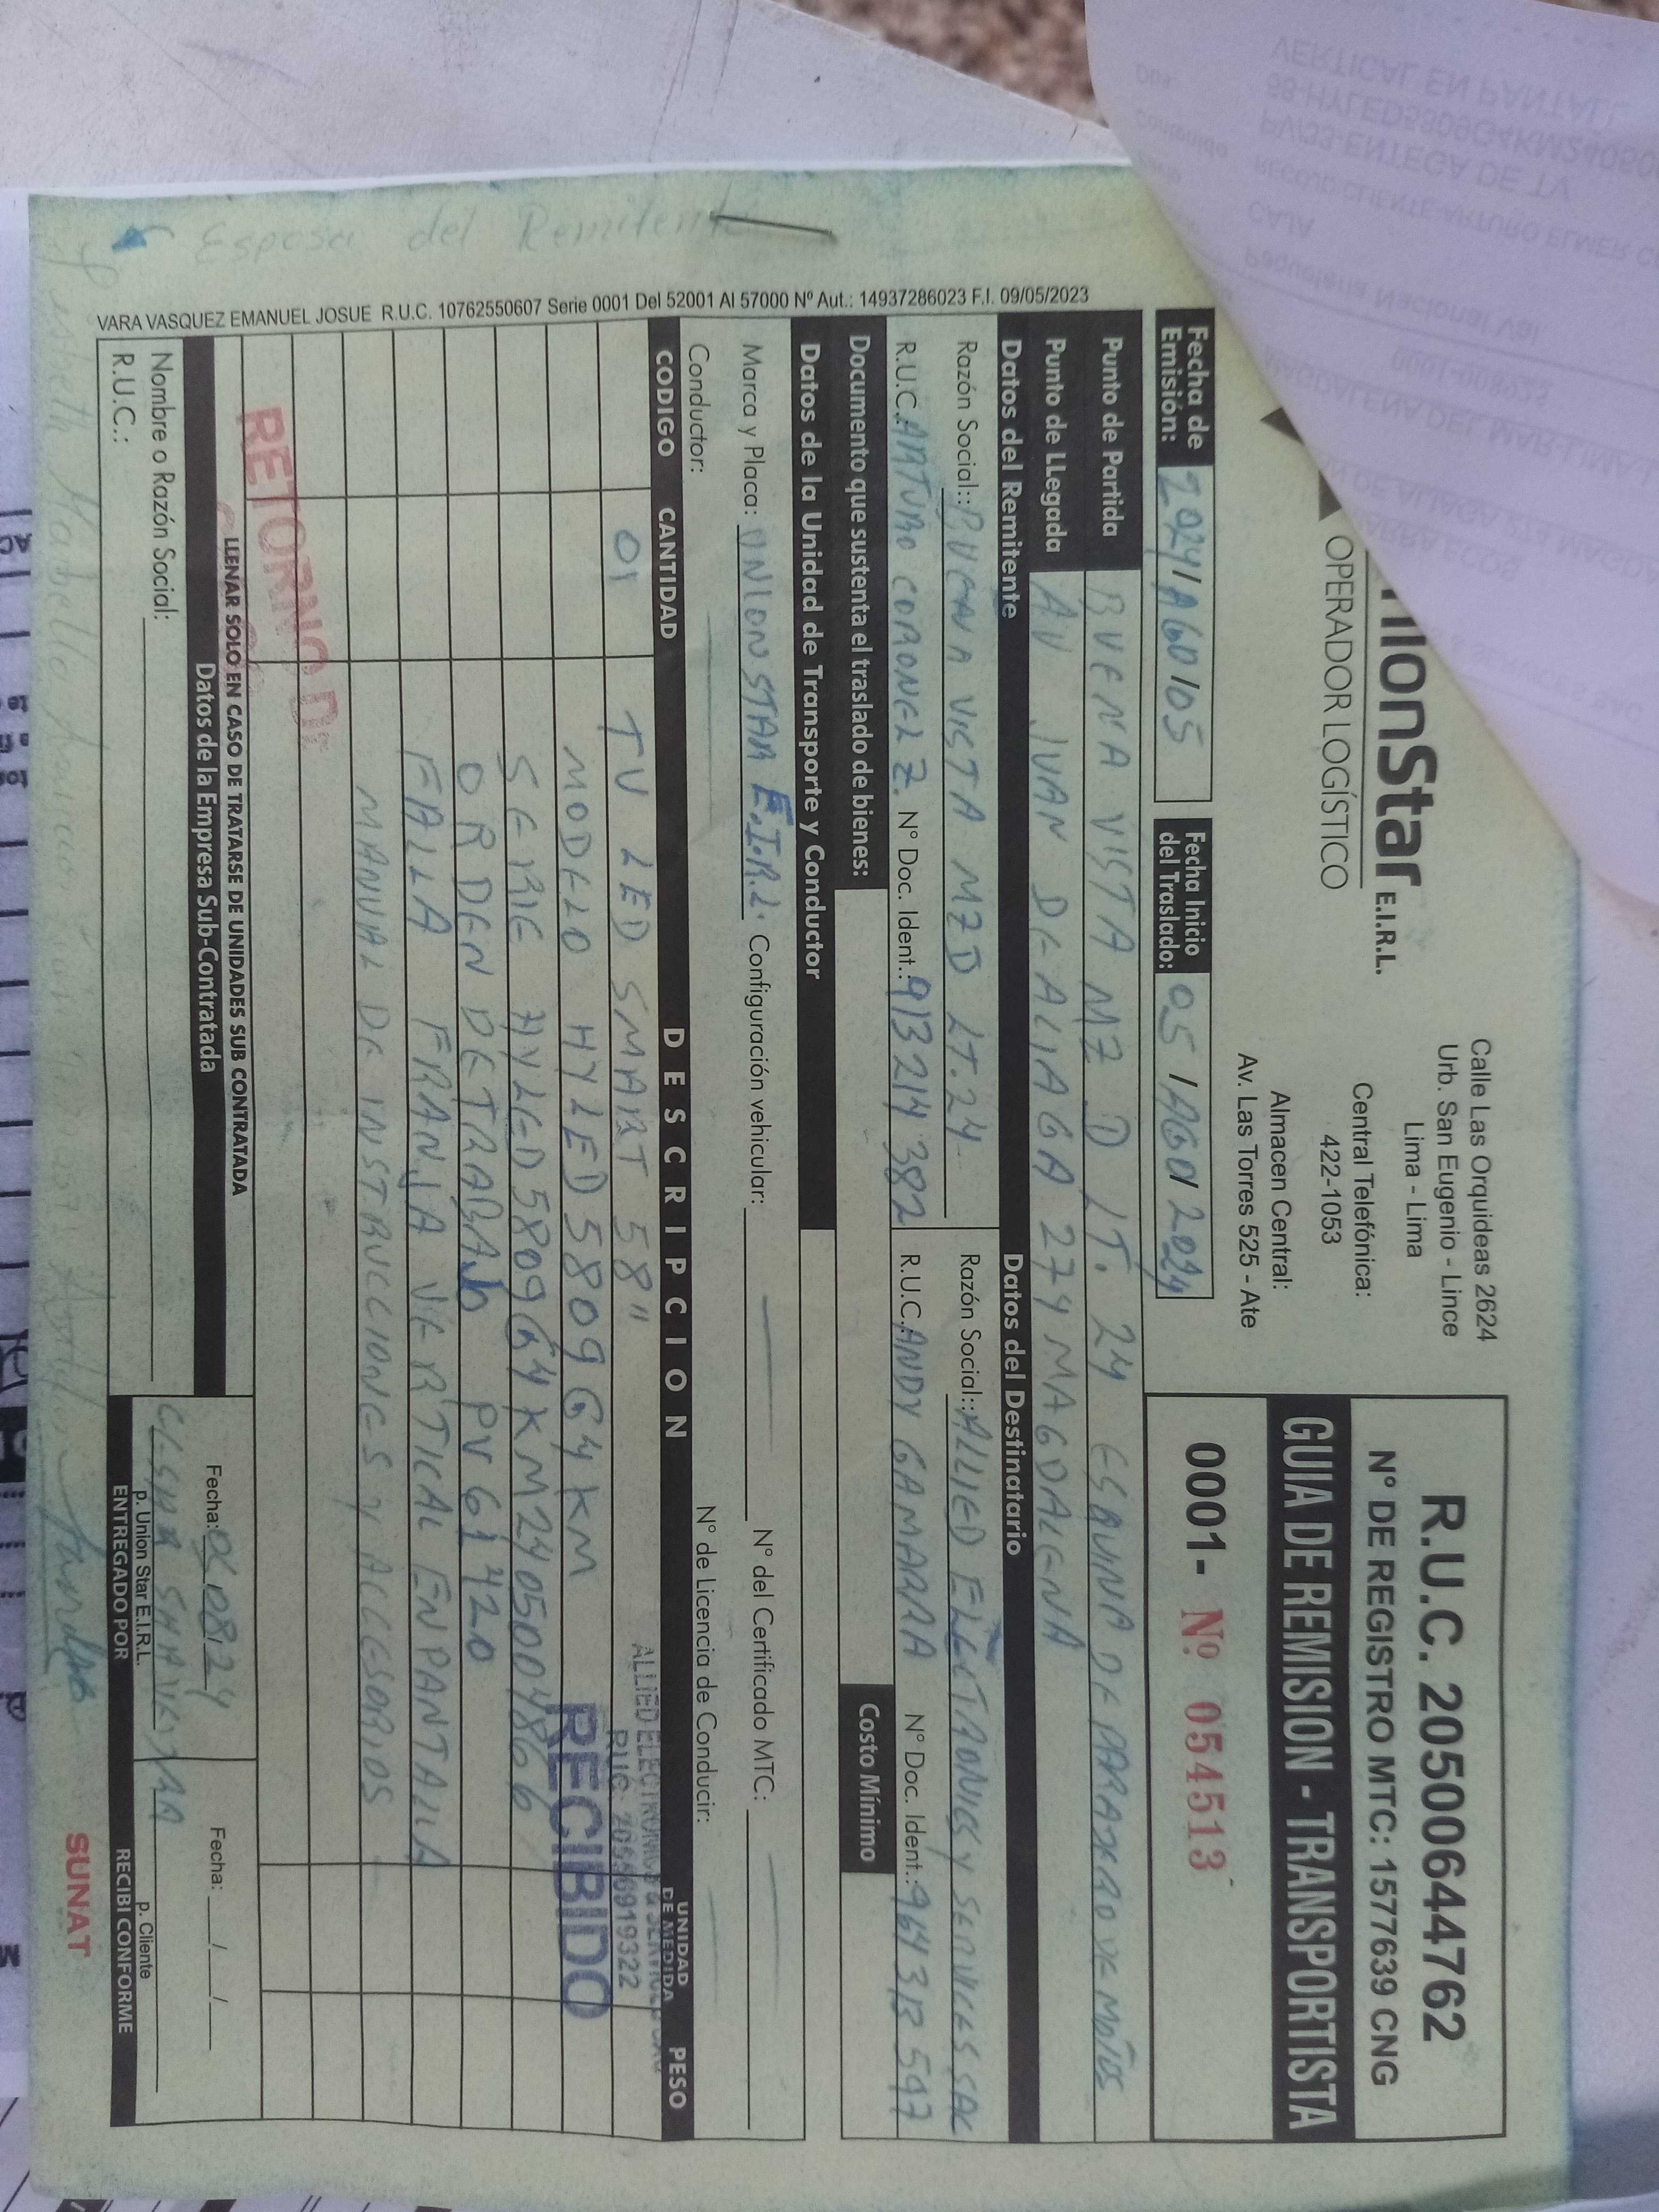 UnionStar E.I.R.L.
OPERADOR LOGÍSTICO
Calle Las Orquideas 2624
Urb. San Eugenio - Lince
Lima - Lima
Central Telefónica:
422-1053
Almacen Central:
Av. Las Torres 525 - Ate
R.U.C. 20500644762
N° DE REGISTRO MTC: 1577639 CNG
GUIA DE REMISION - TRANSPORTISTA
0001- Nº 054513
Fecha de Emisión: 2024/AGO/05
Fecha Inicio del Traslado: 05/AGO/2024
Punto de Partida BUENA VISTA MZ D LT. 24 ESQUINA DE PARADERO DE MOTOS
Punto de LLegada AV JUAN DE ALIAGA 274 MAGDALENA
Datos del Remitente Datos del Destinatario
Razón Social:: BUENA VISTA MZD LT.24 Razón Social:: ALLIED ELECTRONICS Y SERVICES SAC
R.U.C. ARTURO CORONEL Z. N° Doc. Ident.: 913214382 R.U.C. ANDY GAMARRA N° Doc. Ident.: 964313597
Documento que sustenta el traslado de bienes: Costo Mínimo
Datos de la Unidad de Transporte y Conductor
Marca y Placa: UNION STAR E.I.R.L. Configuración vehicular: N° del Certificado MTC:
Conductor: N° de Licencia de Conducir:
CODIGO CANTIDAD DESCRIPCION UNIDAD DE MEDIDA PESO
01 TV LED SMART 58"
MODELO HYLED5809G4KM
SERIE HYLED5809G4KM24050004866
ORDEN DE TRABAJO PV61420
FALLA FRANJA VERTICAL EN PANTALLA
MANUAL DE INSTRUCCIONES Y ACCESORIOS
ALLIED ELECTRONICS & SERVICES SAC
RUC: 20556919322
RECIBIDO
RETORNO DE
LLENAR SOLO EN CASO DE TRATARSE DE UNIDADES SUB CONTRATADA
Datos de la Empresa Sub-Contratada
Nombre o Razón Social:
R.U.C.:
Fecha: 05/08/24
CESAR
p. Union Star E.I.R.L.
ENTREGADO POR
Fecha: __/__/__
p. Cliente
RECIBI CONFORME
SUNAT
VARA VASQUEZ EMANUEL JOSUE R.U.C. 10762550607 Serie 0001 Del 52001 Al 57000 Nº Aut.: 14937286023 F.I. 09/05/2023
Esposa del Remitente
VERTICAL EN PANTALL
PV33-ENTEGA DE TV
RECOJO CLIENTE ARTURO ELMER
CAJA
Paqueteria Nacional
0001-008923